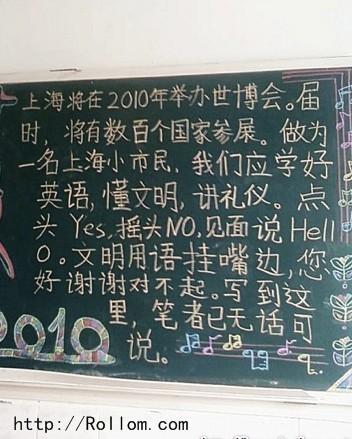 上海将在2010年举办世博会。届
时，将有数百个国家参展。做为
一名上海小市民，我们应学好
英语，懂文明，讲礼仪。点
头Yes，摇头NO，见面说Hell
O。文明用语挂嘴边，您
好谢谢对不起。写到这
里，笔者已无话可
说。
2010
http://Rollom.com